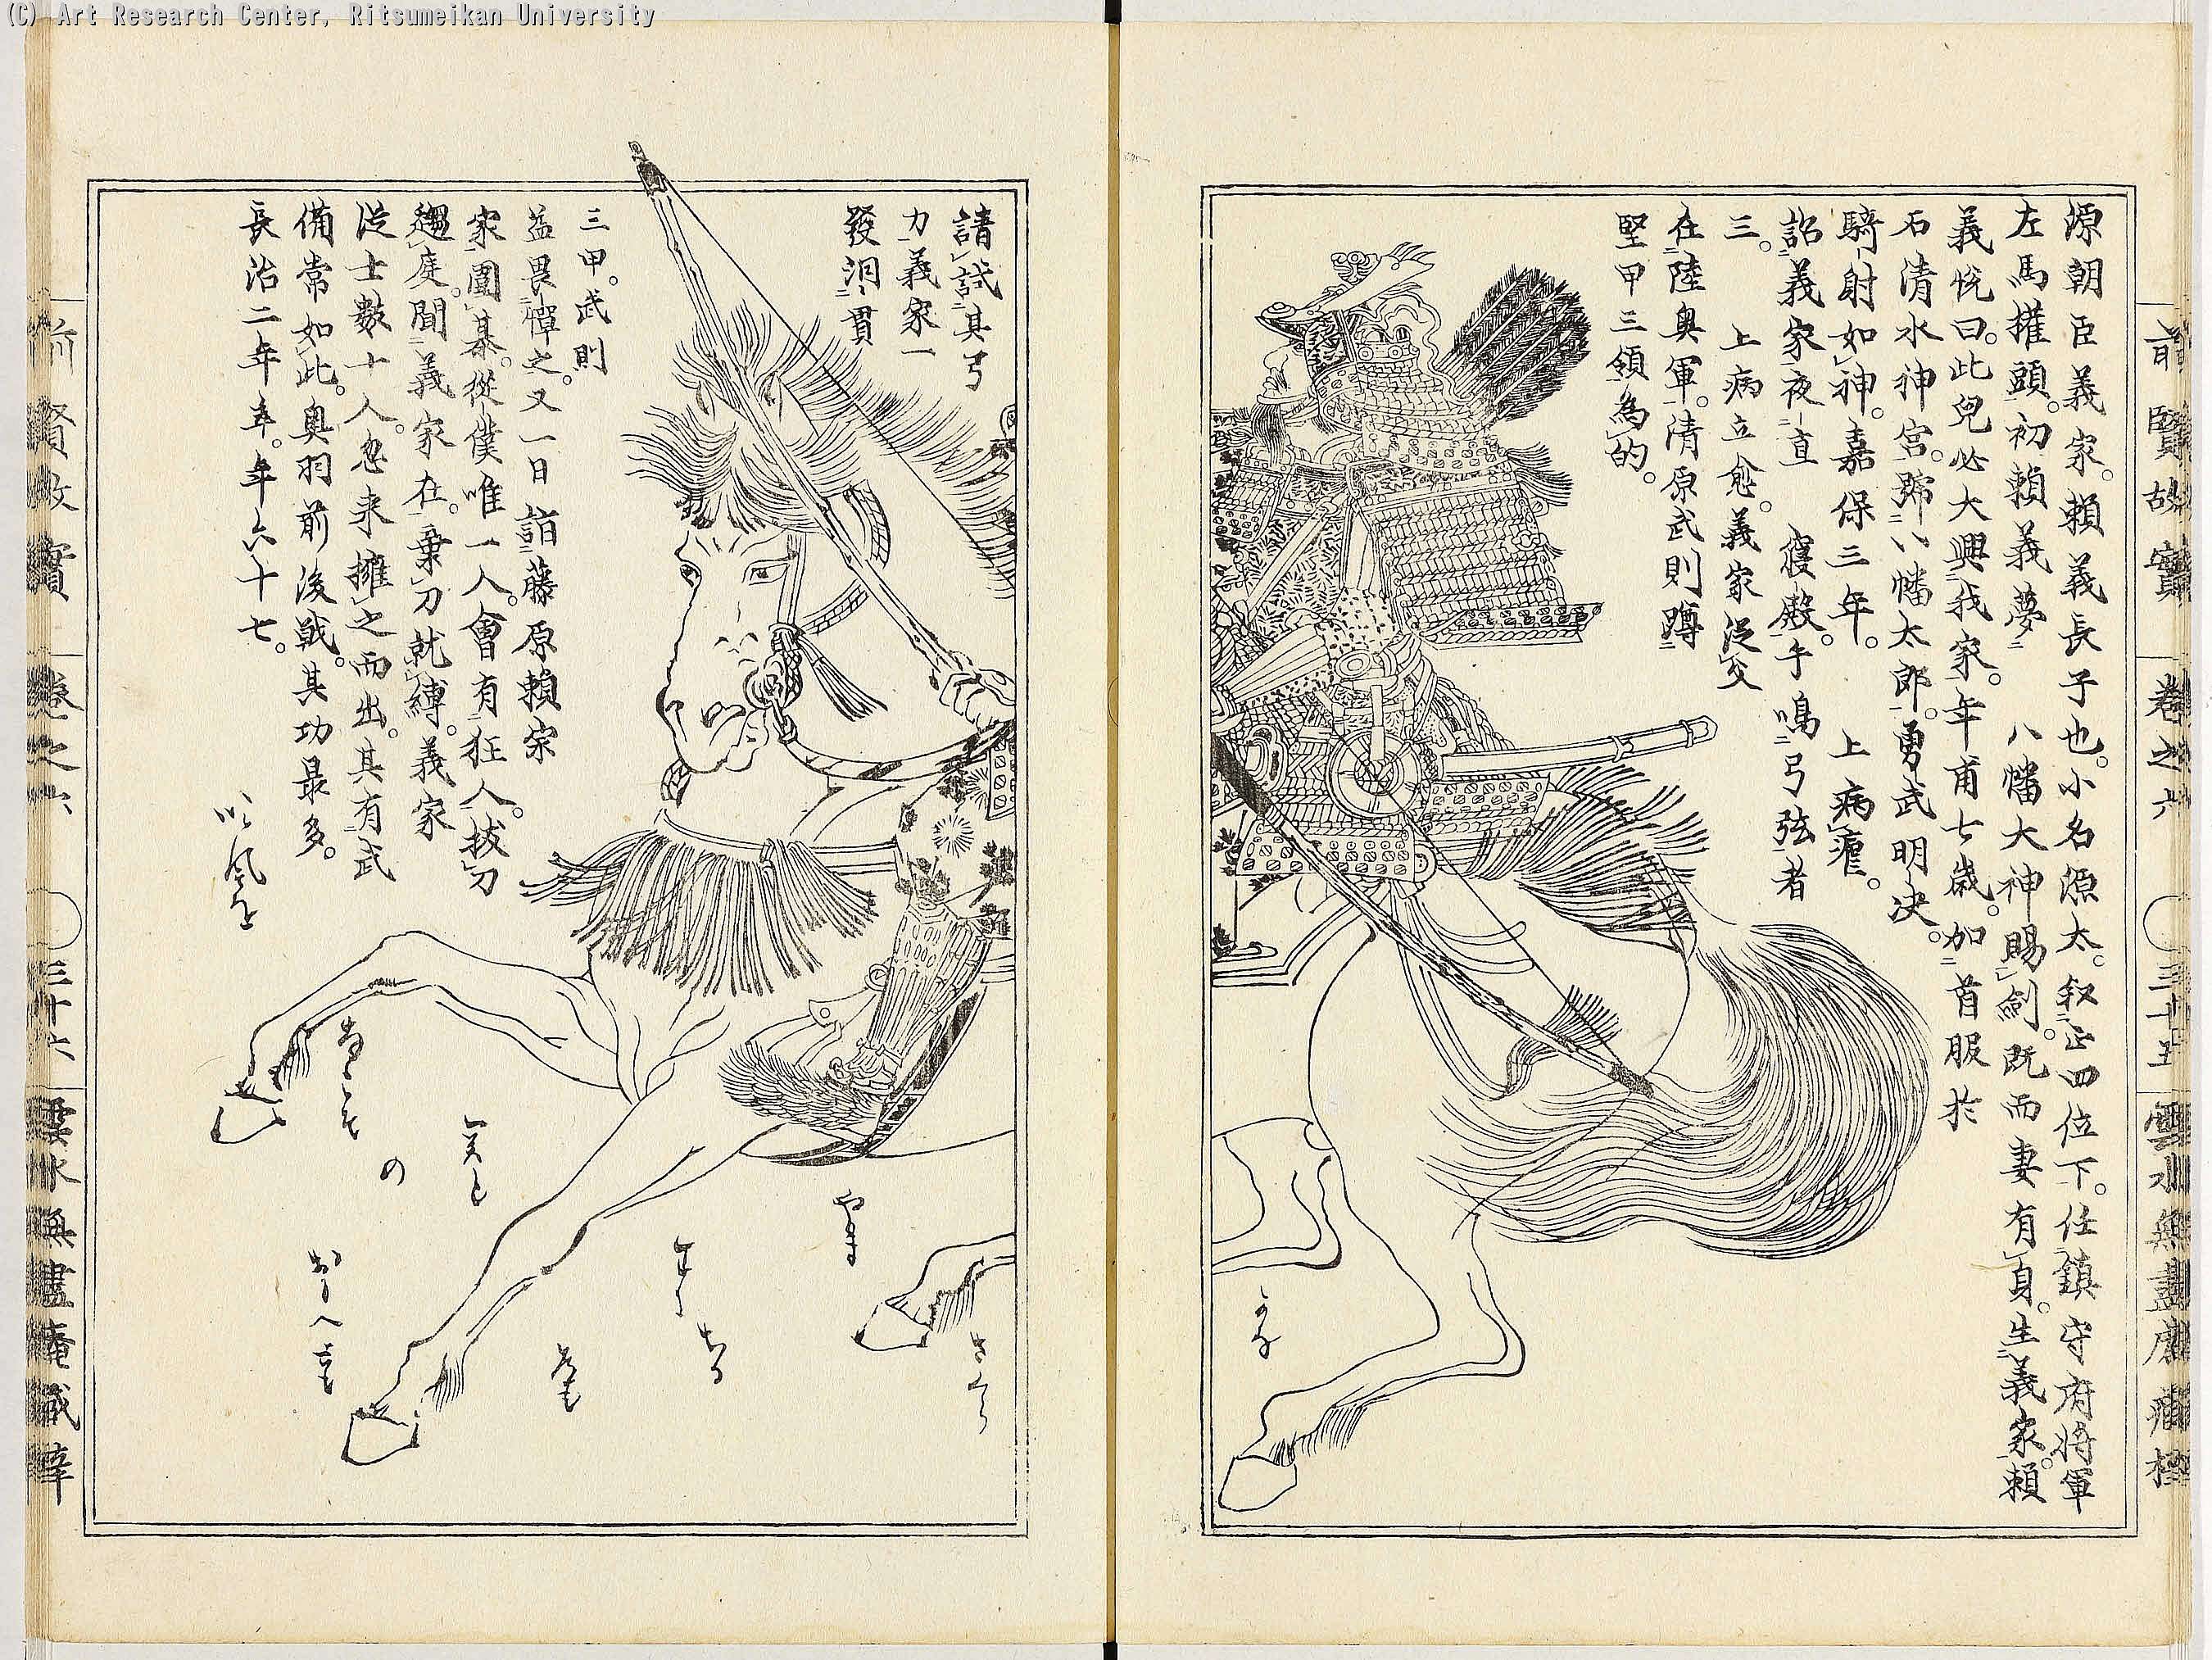 (C) Art Research Center, Ritsumeikan University
前賢故實 卷之六 三十五 雲水無盡庵
源朝臣義家。賴義長子也。小名源太。叙正四位下。任鎮守府將軍
左馬權頭。初賴義夢 八幡大神賜劍。既而妻有身。生義家。賴
義悅曰。此兒必大興我家。年甫七歲。加首服於
石清水神宮。號八幡太郎。勇武明決。
騎射如神。嘉保三年。 上病瘧。
詔義家夜直 寢殿。手鳴弓弦者
三。 上病立愈。義家從父
在陸奥軍。清原武則蹲
堅甲三領為的。
請試其弓
力。義家一
發洞貫
三甲。武則
益畏憚之。又一日詣藤原賴宗
家圍碁。從僕唯一人。會有狂人。拔刀
趨庭。聞義家在。棄刀就縛。義家
從士數十人。忽来擁之而出。其有武
備常如此。奥羽前後戦。其功最多。
長治二年卒。年六十七。
ふく風を
なこそ
の
関と
おもへとも
みちも
せに
ちる
やま
さくら
かな
前賢故實 卷之六 三十六 雲水無盡庵藏梓